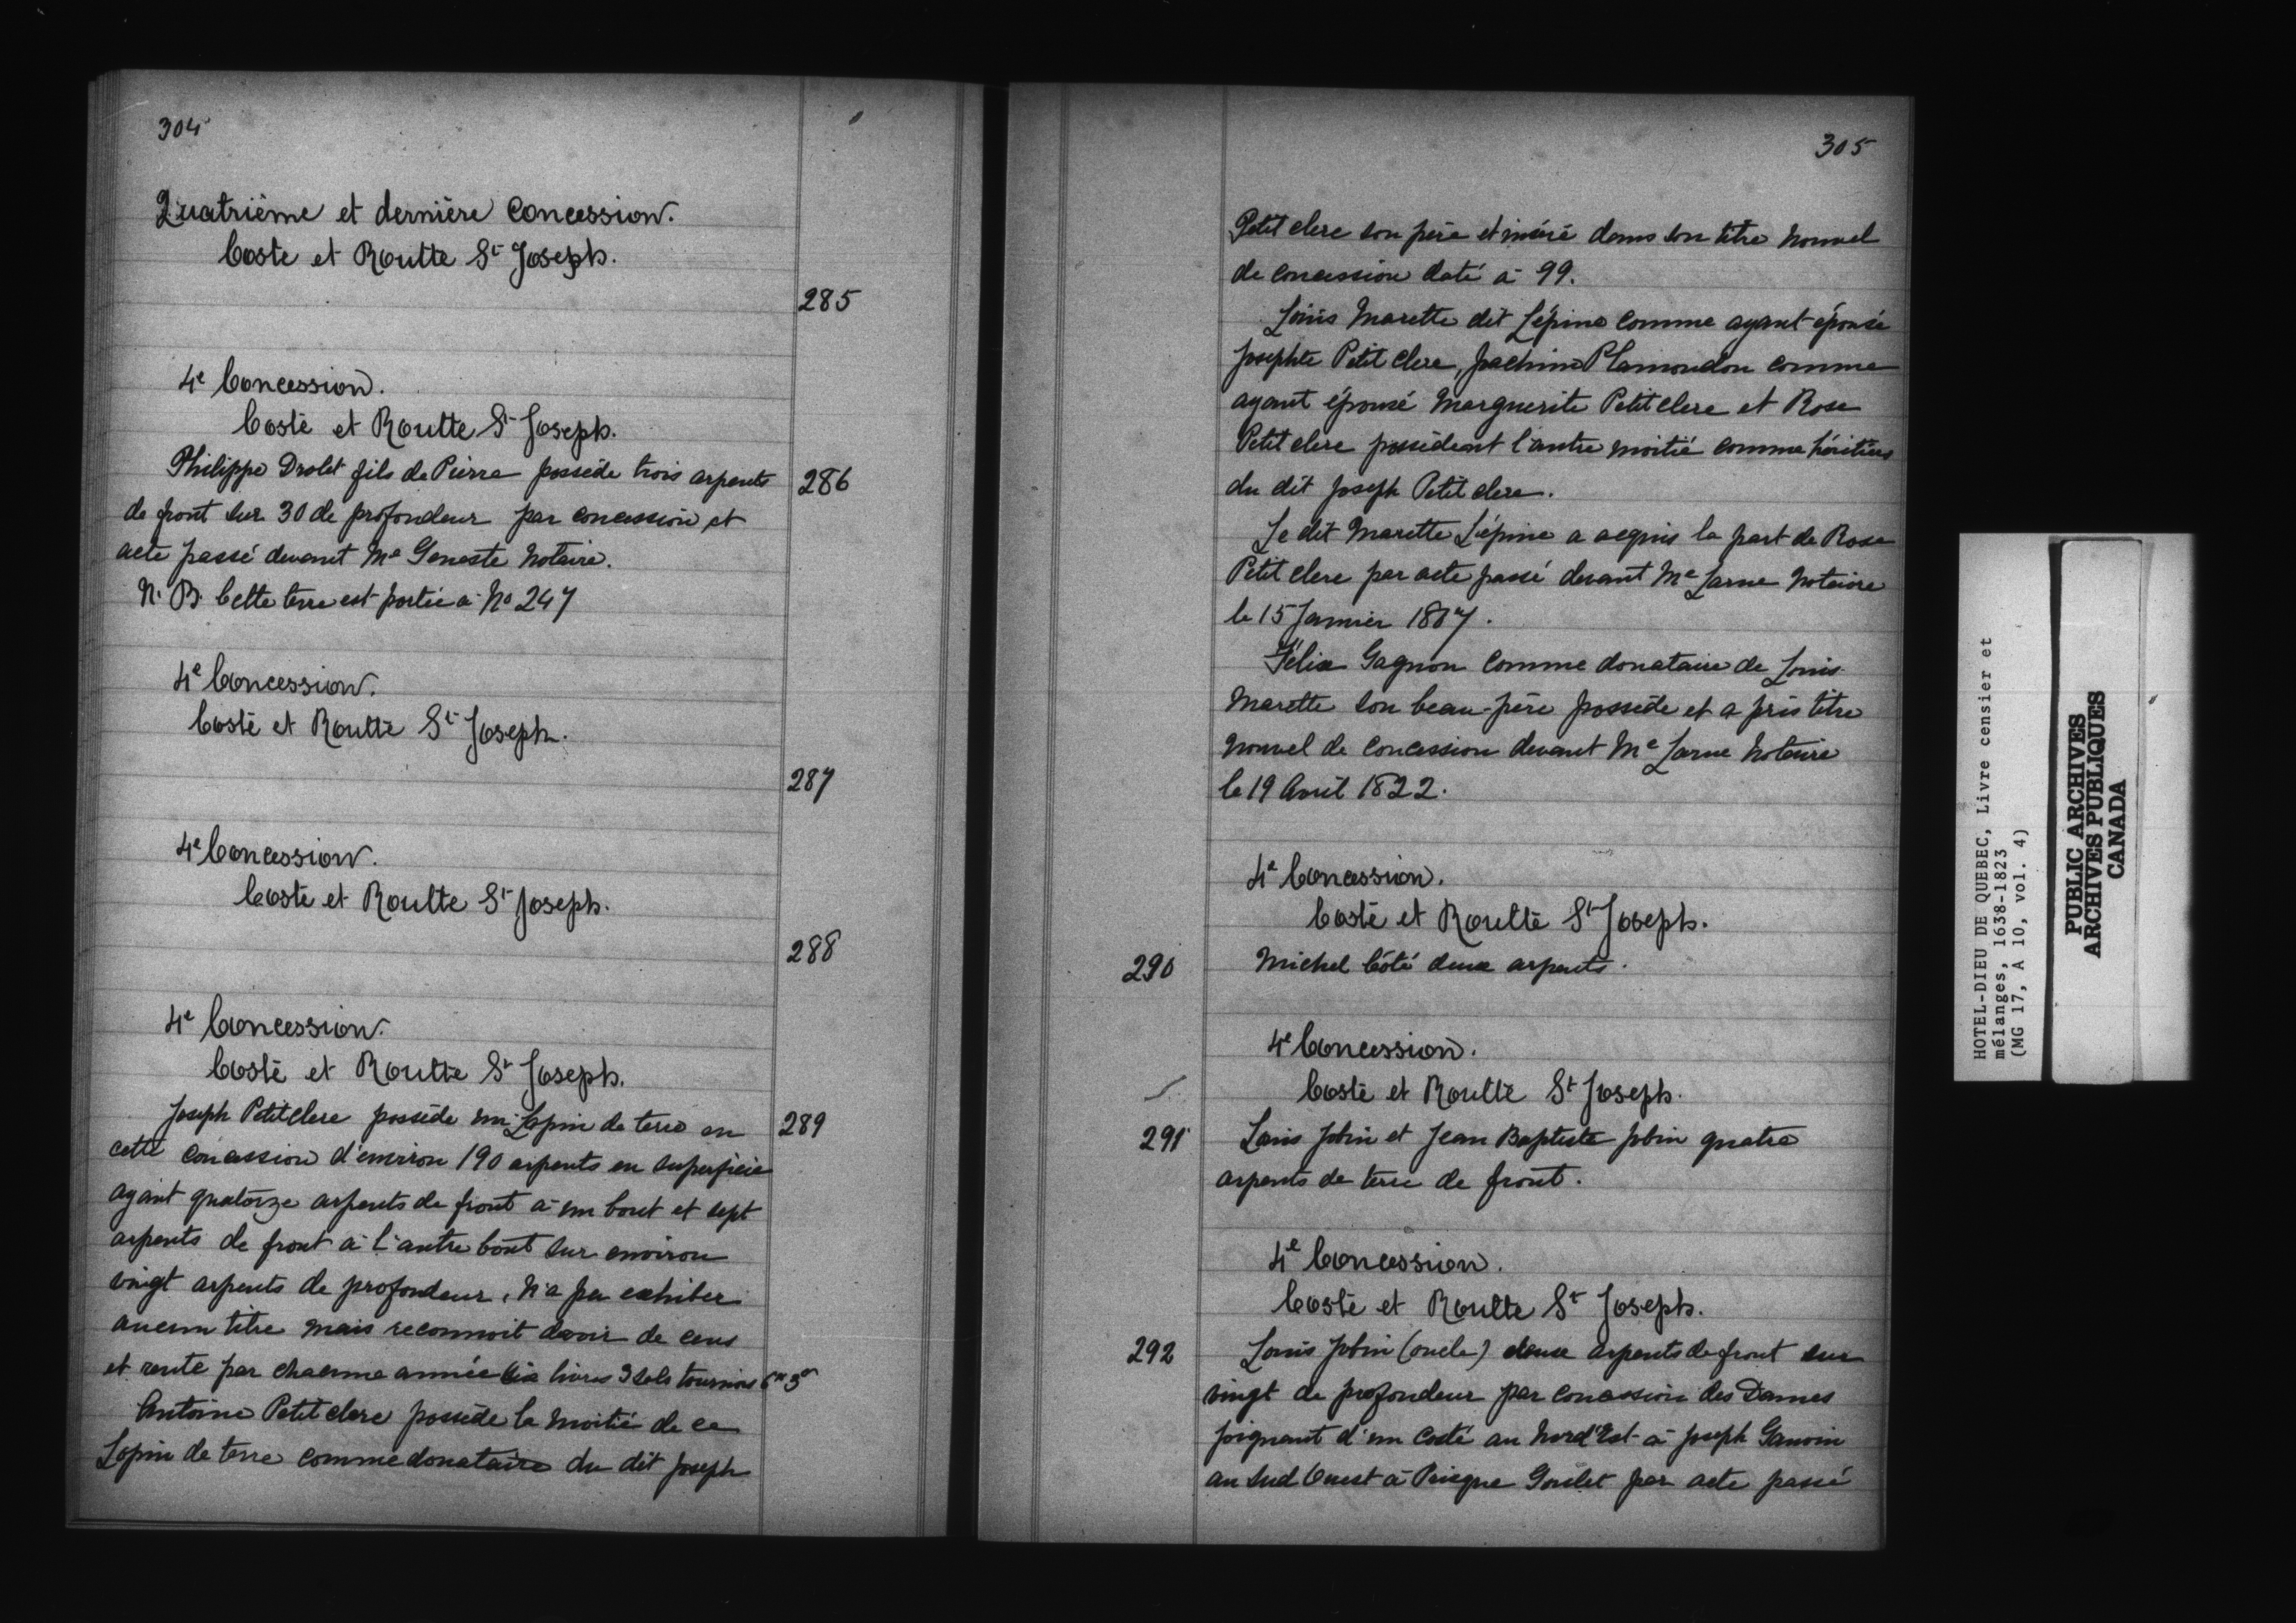 304
Quatrième et dernière Concession.
Coste et Routte St Joseph.
285
4e Concession.
Coste et Routte St Joseph.
Philippe Drolet fils de Pierre possède trois arpents
286
de front sur 30 de profondeur par concession et
acte passé devant Me Geneste Notaire.
N. B. Cette terre est portée à No 247
4e Concession.
Coste et Routte St Joseph.
287
4e Concession.
Coste et Routte St Joseph.
288
4e Concession.
Coste et Routte St Joseph.
Joseph Petitclerc possède un Lopin de terre en
289
cette concession d'environ 190 arpents en superficie
ayant quatorze arpents de front à un bout et sept
arpents de front à l'autre bout sur environ
vingt arpents de profondeur, n'a pu exhiber
aucun titre mais reconnoit devoir de cens
et rente par chacune année six livres 3 sols tournois 6tt 3s
Antoine Petit clerc possède la moitié de ce
Lopin de terre comme donataire du dit Joseph
305
Petit clerc son père et inséré dans son titre nouvel
de concession daté à 99.
Louis Marette dit Lépine comme ayant épousé
Josephte Petit clerc, Joachim Plamondon comme
ayant épousé Marguerite Petit clerc et Rose
Petit clerc possèdent l'autre moitié comme héritiers
du dit Joseph Petit clerc.
Le dit Marette Lépine a acquis la part de Rose
Petit clerc par acte passé devant Me Larue Notaire
le 15 Janvier 1807.
Félix Gagnon comme donataire de Louis
Marette son beau-père possède et a pris titre
nouvel de concession devant Me Larue Notaire
le 19 Avril 1822.
4e Concession.
Coste et Routte St Joseph.
290
Michel Côté deux arpents.
4e Concession.
Coste et Routte St Joseph.
291
Louis Jobin et Jean Baptiste Jobin quatre
arpents de terre de front.
4e Concession.
Coste et Routte St Joseph.
292
Louis Jobin (oncle) deux arpents de front sur
vingt de profondeur par concession des Dames
joignant d'un costé au Nord'Est à Joseph Gauvin
au Sud Ouest à Goulet par acte passé
HOTEL-DIEU DE QUEBEC, Livre censier et
mélanges, 1638-1823
(MG 17, A 10, vol. 4)
PUBLIC ARCHIVES
ARCHIVES PUBLIQUES
CANADA